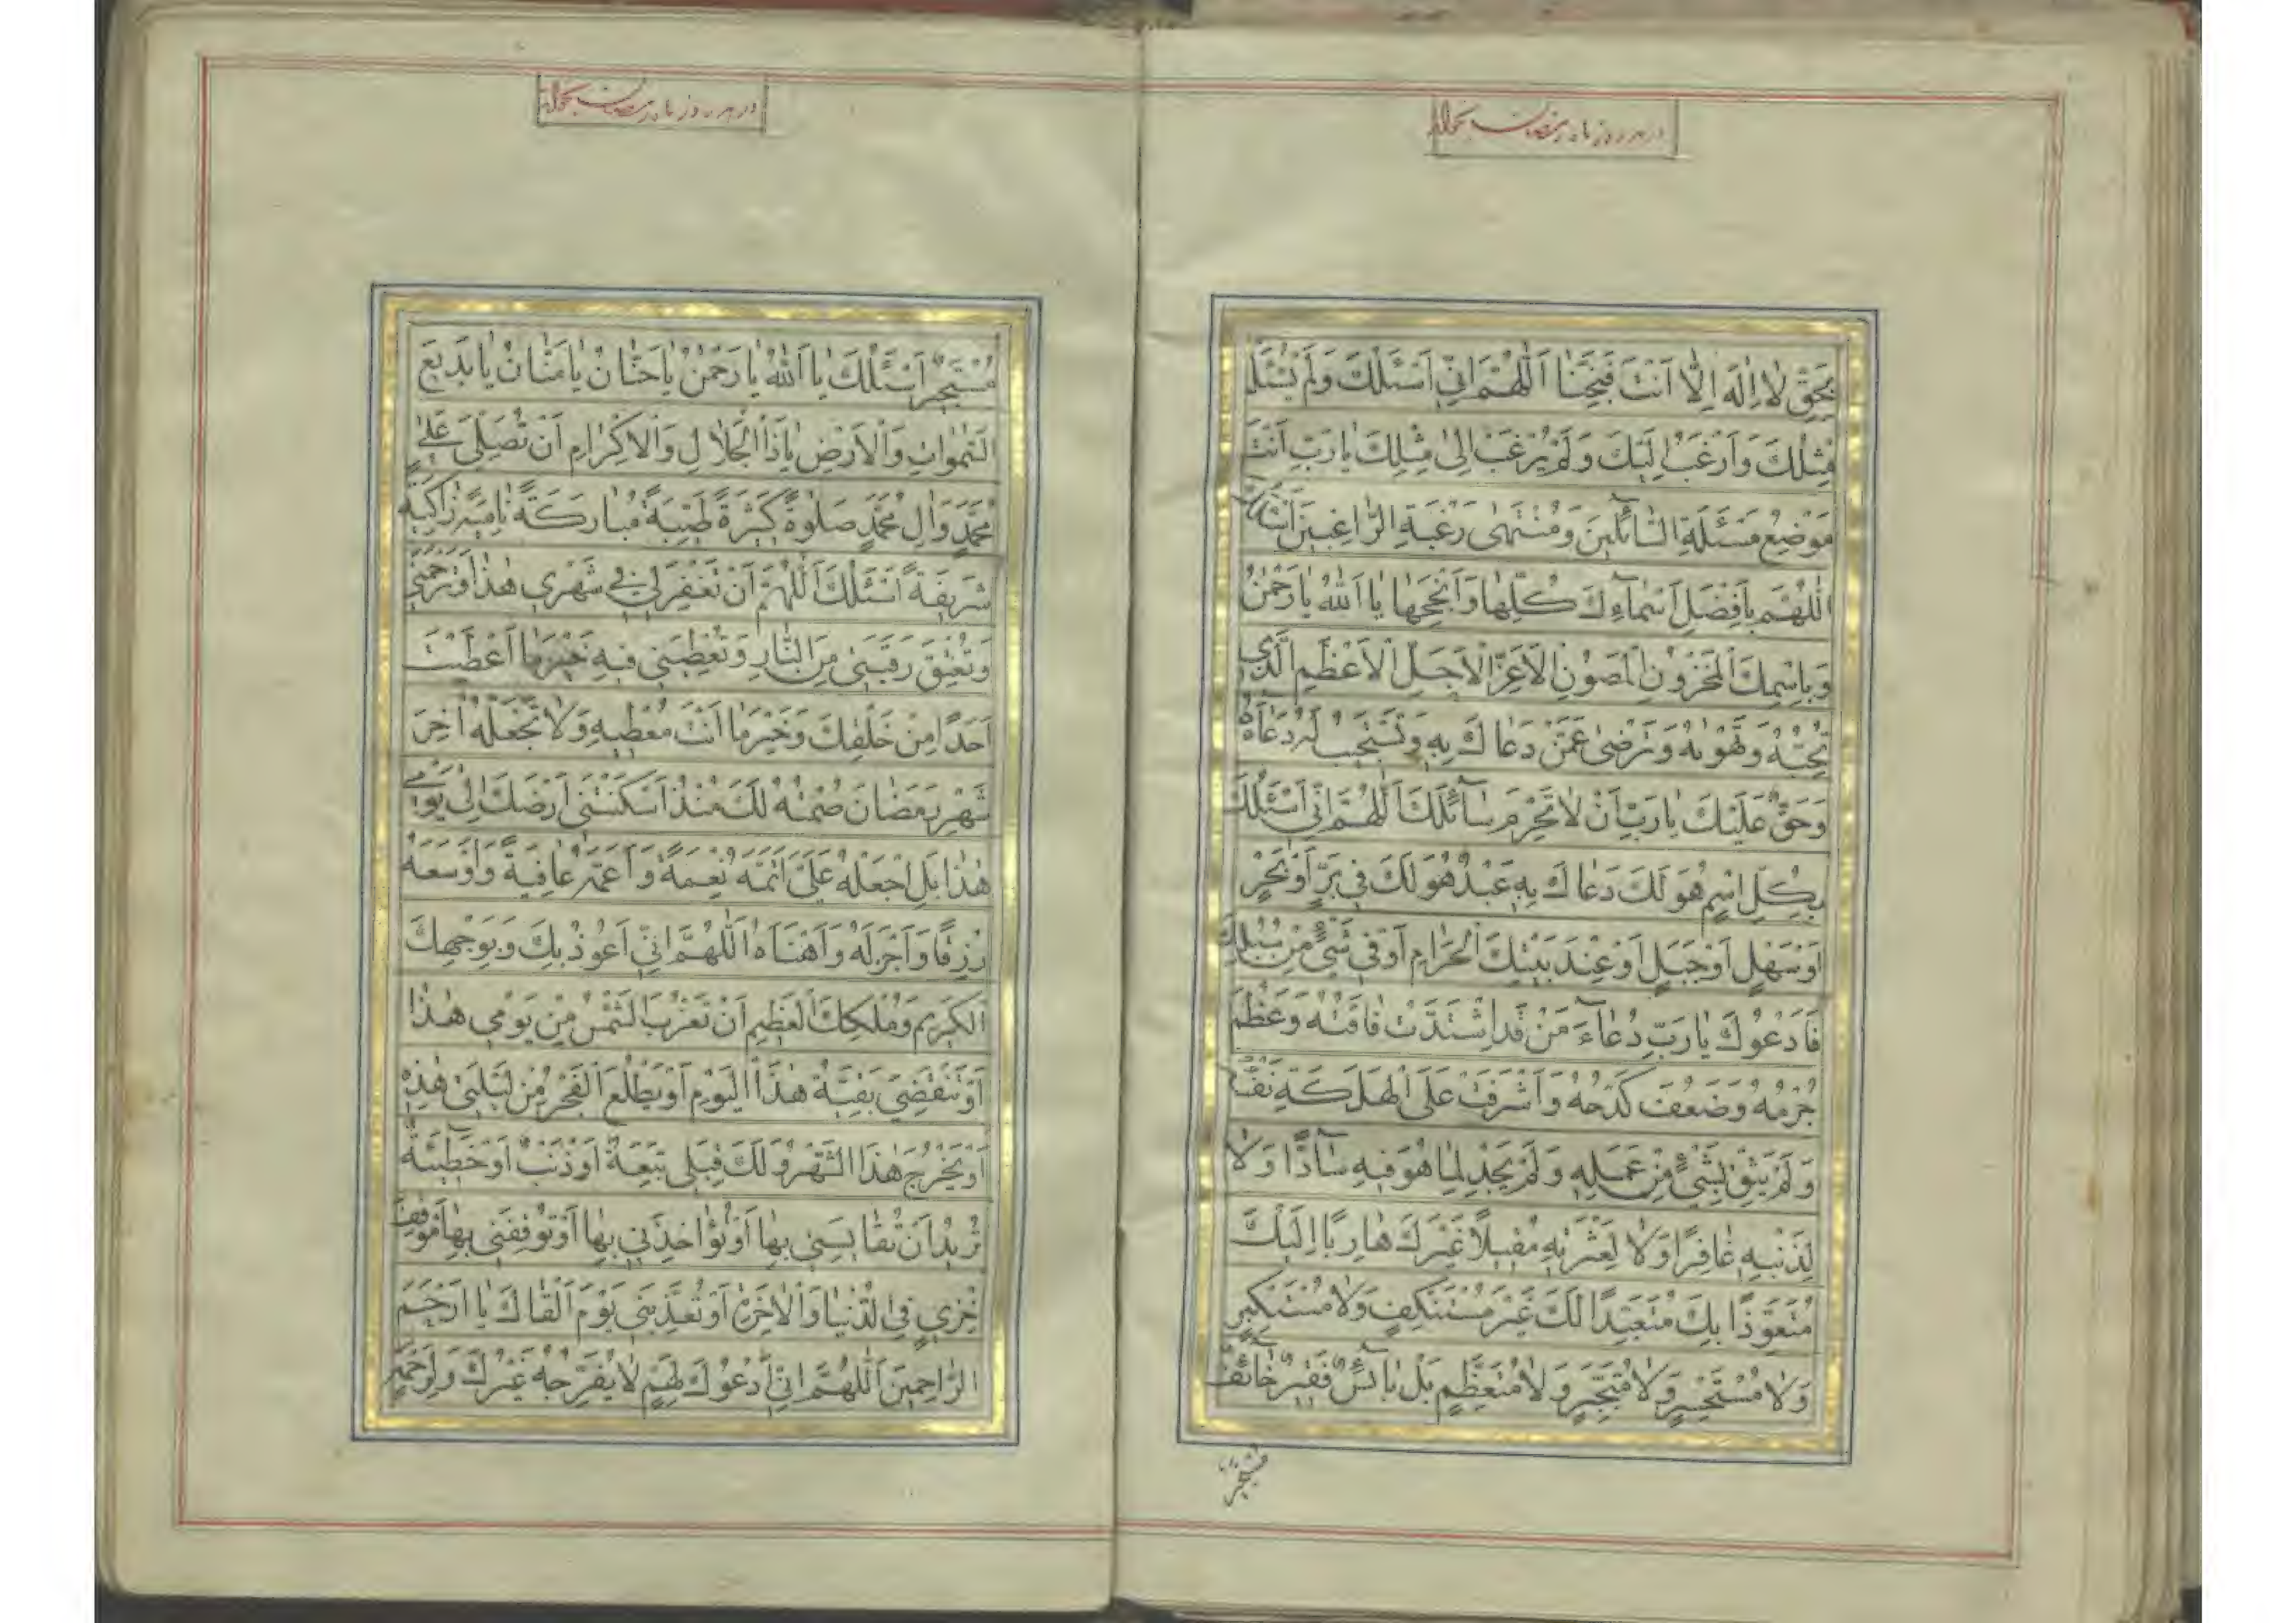 در هر روز ماه رمضان بخواند
بِحَقِّ لا اِلهَ اِلّا اَنْتَ فَنَجِّنا اَللّهُمَّ اِنّی اَسْئَلُكَ وَلَمْ یُسْئَلْ
مِثْلُكَ وَاَرْغَبُ اِلَیْكَ وَلَمْ یُرْغَبْ اِلی مِثْلِكَ یا رَبِّ اَنْتَ
مَوْضِعُ مَسْئَلَةِ السّآئِلینَ وَمُنْتَهی رَغْبَةِ الرّاغِبینَ اَسْئَلُكَ
اَللّهُمَّ بِاَفْضَلِ اَسْمآءِكَ كُلِّها وَاَنْجَحِها یا اَللهُ یا رَحْمنُ
وَبِاسْمِكَ الْمَخْزُونِ الْمَصُونِ الْاَعَزِّ الْاَجَلِّ الْاَعْظَمِ الَّذی
تُحِبُّهُ وَتَهْویهُ وَتَرْضی عَمَّنْ دَعاكَ بِهِ وَتَسْتَجیبُ لَهُ دُعآءَهُ
وَحَقٌّ عَلَیْكَ یا رَبِّ اَنْ لا تَحْرِمَ سآئِلَكَ اَللّهُمَّ اِنّی اَسْئَلُكَ
بِكُلِّ اسْمٍ هُوَ لَكَ دَعاكَ بِهِ عَبْدٌ هُوَ لَكَ فی بَرٍّ اَوْ بَحْرٍ
اَوْ سَهْلٍ اَوْ جَبَلٍ اَوْ عِنْدَ بَیْتِكَ الْحَرامِ اَوْ فی شَیْءٍ مِنْ سُبُلِكَ
فَاَدْعُوكَ یا رَبِّ دُعآءَ مَنْ قَدِ اشْتَدَّتْ فاقَتُهُ وَعَظُمَ
جُرْمُهُ وَضَعُفَ كَدْحُهُ وَاَشْرَفَتْ عَلَی الْهَلَكَةِ نَفْسُهُ
وَلَمْ یَثِقْ بِشَیْءٍ مِنْ عَمَلِهِ وَلَمْ یَجِدْ لِما هُوَ فیهِ سآدًّا وَلا
لِذَنْبِهِ غافِرًا وَلا لِعَثْرَتِهِ مُقیلًا غَیْرَكَ هارِبًا اِلَیْكَ
مُتَعَوِّذًا بِكَ مُتَعَبِّدًا لَكَ غَیْرَ مُسْتَنْكِفٍ وَلا مُسْتَكْبِرٍ
وَلا مُسْتَحْسِرٍ وَلا مُتَجَبِّرٍ وَلا مُتَعَظِّمٍ بَلْ بآئِسٌ فَقیرٌ خآئِفٌ
مُسْتَجیرٌ
در هر روز ماه رمضان بخواند
مُسْتَجیرٌ اَسْئَلُكَ یا اَللهُ یا رَحْمنُ یا حَنّانُ یا مَنّانُ یا بَدیعَ
السَّمواتِ وَالْاَرْضِ یا ذَا الْجَلالِ وَالْاِكْرامِ اَنْ تُصَلِّیَ عَلی
مُحَمَّدٍ وَآلِ مُحَمَّدٍ صَلوةً كَثیرَةً طَیِّبَةً مُبارَكَةً نامِیَةً زاكِیَةً
شَریفَةً اَسْئَلُكَ اَللّهُمَّ اَنْ تَغْفِرَ لی فی شَهْری هذا وَتَرْحَمَنی
وَتُعْتِقَ رَقَبَتی مِنَ النّارِ وَتُعْطِیَنی فیهِ خَیْرَ ما اَعْطَیْتَ
اَحَدًا مِنْ خَلْقِكَ وَخَیْرَ ما اَنْتَ مُعْطیهِ وَلا تَجْعَلْهُ آخِرَ
شَهْرِ رَمَضانَ صُمْتُهُ لَكَ مُنْذُ اَسْكَنْتَنی اَرْضَكَ اِلی یَوْمی
هذا بَلِ اجْعَلْهُ عَلَیَّ اَتَمَّهُ نِعْمَةً وَاَعَمَّهُ عافِیَةً وَاَوْسَعَهُ
رِزْقًا وَاَجْزَلَهُ وَاَهْنَاَهُ اَللّهُمَّ اِنّی اَعُوذُ بِكَ وَبِوَجْهِكَ
الْكَریمِ وَمُلْكِكَ الْعَظیمِ اَنْ تَغْرُبَ الشَّمْسُ مِنْ یَوْمی هذا
اَوْ یَنْقَضِیَ بَقِیَّةُ هذَا الْیَوْمِ اَوْ یَطْلُعَ الْفَجْرُ مِنْ لَیْلَتی هذِهِ
اَوْ یَخْرُجَ هذَا الشَّهْرُ وَلَكَ قِبَلی تَبِعَةٌ اَوْ ذَنْبٌ اَوْ خَطیئَةٌ
تُریدُ اَنْ تُقایِسَنی بِها اَوْ تُؤاخِذَنی بِها اَوْ تُوقِفَنی بِها مَوْقِفَ
خِزْیٍ فِی الدُّنْیا وَالْآخِرَةِ اَوْ تُعَذِّبَنی یَوْمَ اَلْقاكَ یا اَرْحَمَ
الرّاحِمینَ اَللّهُمَّ اِنّی اَدْعُوكَ لِهَمٍّ لا یُفَرِّجُهُ غَیْرُكَ وَلِرَحْمَةٍ